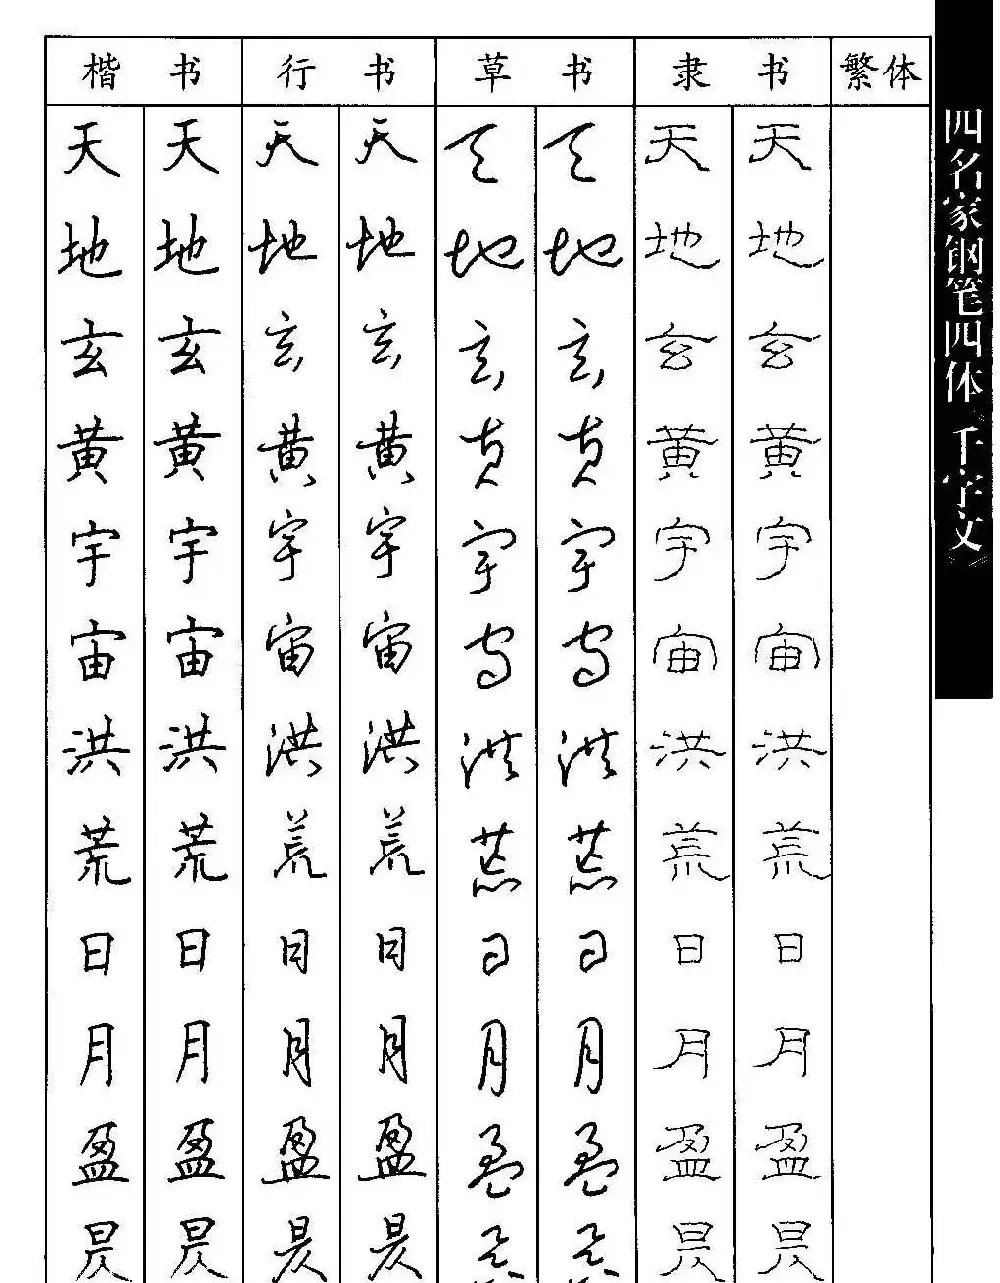 楷书 行书 草书 隶书 繁体
天 天 天 天 天 天 天 天
地 地 地 地 地 地 地 地
玄 玄 玄 玄 玄 玄 玄 玄
黄 黄 黄 黄 黄 黄 黄 黄
宇 宇 宇 宇 宇 宇 宇 宇
宙 宙 宙 宙 宙 宙 宙 宙
洪 洪 洪 洪 洪 洪 洪 洪
荒 荒 荒 荒 荒 荒 荒 荒
日 日 日 日 日 日 日 日
月 月 月 月 月 月 月 月
盈 盈 盈 盈 盈 盈 盈 盈
昃 昃 昃 昃 昃 昃 昃 昃
四名家钢笔四体千字文